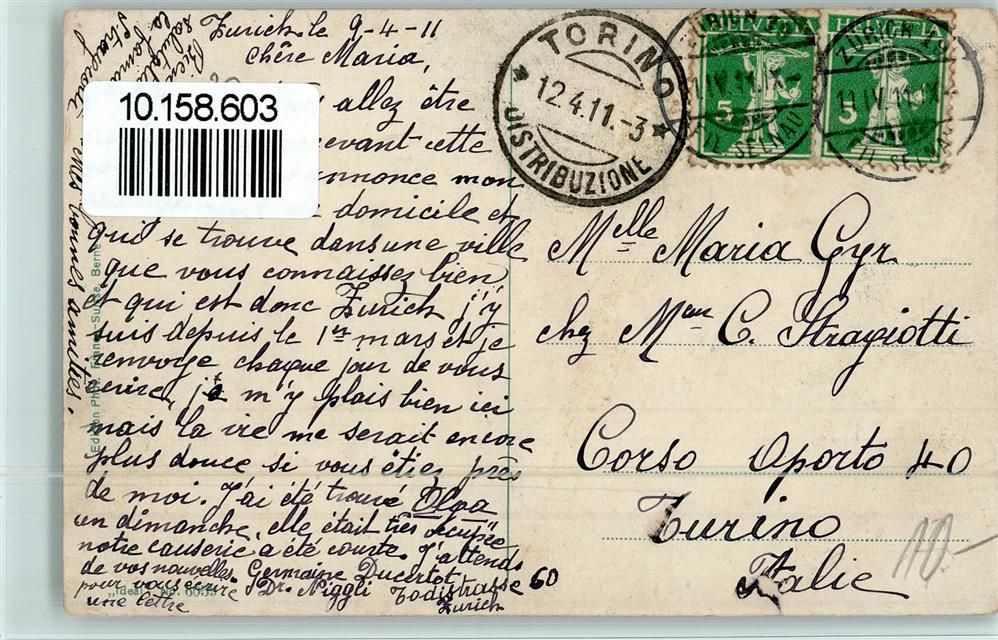 Zurich le 9-4-11
chère Maria,
allez être
evant cette
nnonce mon
domicile et
qui se trouve dans une ville
que vous connaissez bien,
et qui est donc Zurich, j'y
suis depuis le 1er mars et je
renvoie chaque jour de vous
écrire, je m'y plais bien ici
mais la vie me serait encore
plus douce si vous étiez près
de moi. J'ai été trouvé Olga
un dimanche, elle était très occupée
notre causerie a été courte. J'attends
de vos nouvelles Germaine Ducertot
pour vous écrire Dr. Niggli Todistrasse 60
une lettre Zurich
Bien
salutations
la famille
Stragiotti
mes bonnes amitiés.
10.158.603
Edition Phot. Franco-Suisse, Berne
"Ideal" No. 6053
TORINO
12.4.11.-3
DISTRIBUZIONE
HELVETIA
5
ZÜRICH
11.IV.11
SELNAU
HELVETIA
5
ZÜRICH
11.IV.11
SELNAU
Melle Maria Gyr
chez Mme C. Stragiotti
Corso Oporto 40
Turino
Italie
10.-